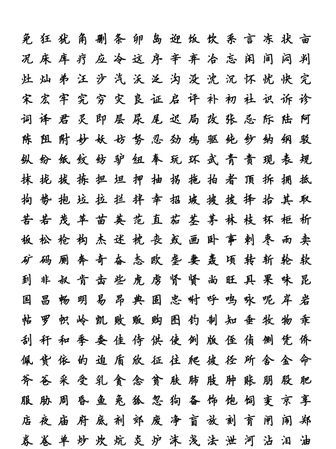 兔 狂 犹 角 删 条 卵 岛 迎 饭 饮 系 言 冻 状 亩
况 床 库 疗 应 冷 这 序 辛 弃 冶 忘 闲 间 闷 判
灶 灿 弟 汪 沙 汽 沃 泛 沟 没 沈 沉 怀 忧 快 完
宋 宏 牢 究 穷 灾 良 证 启 评 补 初 社 识 诉 诊
词 译 君 灵 即 层 尿 尾 迟 局 改 张 忌 际 陆 阿
陈 阻 附 妙 妖 妨 努 忍 劲 鸡 驱 纯 纱 纳 纲 驳
纵 纷 纸 纹 纺 驴 纽 奉 玩 环 武 青 责 现 表 规
抹 拢 拔 拣 担 坦 押 抽 拐 拖 拍 者 顶 拆 拥 抵
拘 势 抱 垃 拉 拦 拌 幸 招 坡 披 拨 择 抬 其 取
苦 若 茂 苹 苗 英 范 直 茄 茎 茅 林 枝 杯 柜 析
板 松 枪 构 杰 述 枕 丧 或 画 卧 事 刺 枣 雨 卖
矿 码 厕 奔 奇 奋 态 欧 垄 妻 轰 顷 转 斩 轮 软
到 非 叔 肯 齿 些 虎 虏 肾 贤 尚 旺 具 果 味 昆
国 昌 畅 明 易 昂 典 固 忠 咐 呼 鸣 咏 呢 岸 岩
帖 罗 帜 岭 凯 败 贩 购 图 钓 制 知 垂 牧 物 乖
刮 秆 和 季 委 佳 侍 供 使 例 版 侄 侦 侧 凭 侨
佩 货 依 的 迫 质 欣 征 往 爬 彼 径 所 舍 金 命
斧 爸 采 受 乳 贪 念 贫 肤 肺 肢 肿 胀 朋 股 肥
服 胁 周 昏 鱼 兔 狐 忽 狗 备 饰 饱 饲 变 京 享
店 夜 庙 府 底 剂 郊 废 净 盲 放 刻 育 闸 闹 郑
券 卷 单 炒 炊 炕 炎 炉 沫 浅 法 泄 河 沾 泪 油